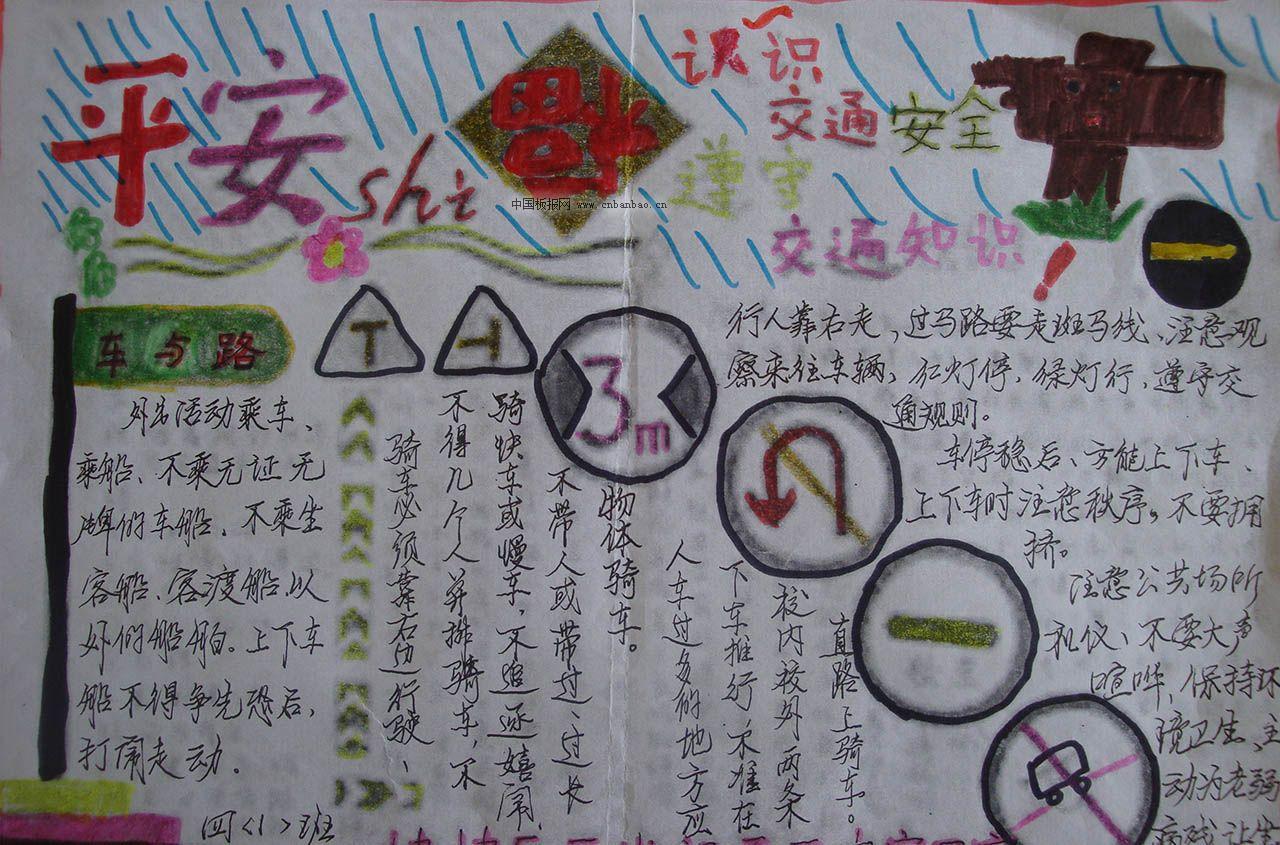 平安
shi
福
认识
交通安全
遵守
交通知识!
中国板报网 www.cnbanbao.cn
车与路
外出活动乘车、
乘船、不乘无证无
牌的车船、不乘坐
客船、客渡船以
外的船舶。上下车
船不得争先恐后,
打闹走动.
四〈1〉班
3m
骑车必须靠右边行驶、
不得几个人并排骑车,不
骑快车或慢车,不追逐嬉闹,
不带人或带过、过长
物体骑车。
人车过多的地方应
下车推行,不准在
校内校外两条
直路上骑车。
行人靠右走,过马路要走斑马线、注意观
察来往车辆,红灯停,绿灯行,遵守交
通规则。
车停稳后、方能上下车、
上下车时注意秩序。不要拥
挤。
注意公共场所
礼仪、不要大声
喧哗,保持环
境卫生、主
动为老弱
病残让坐